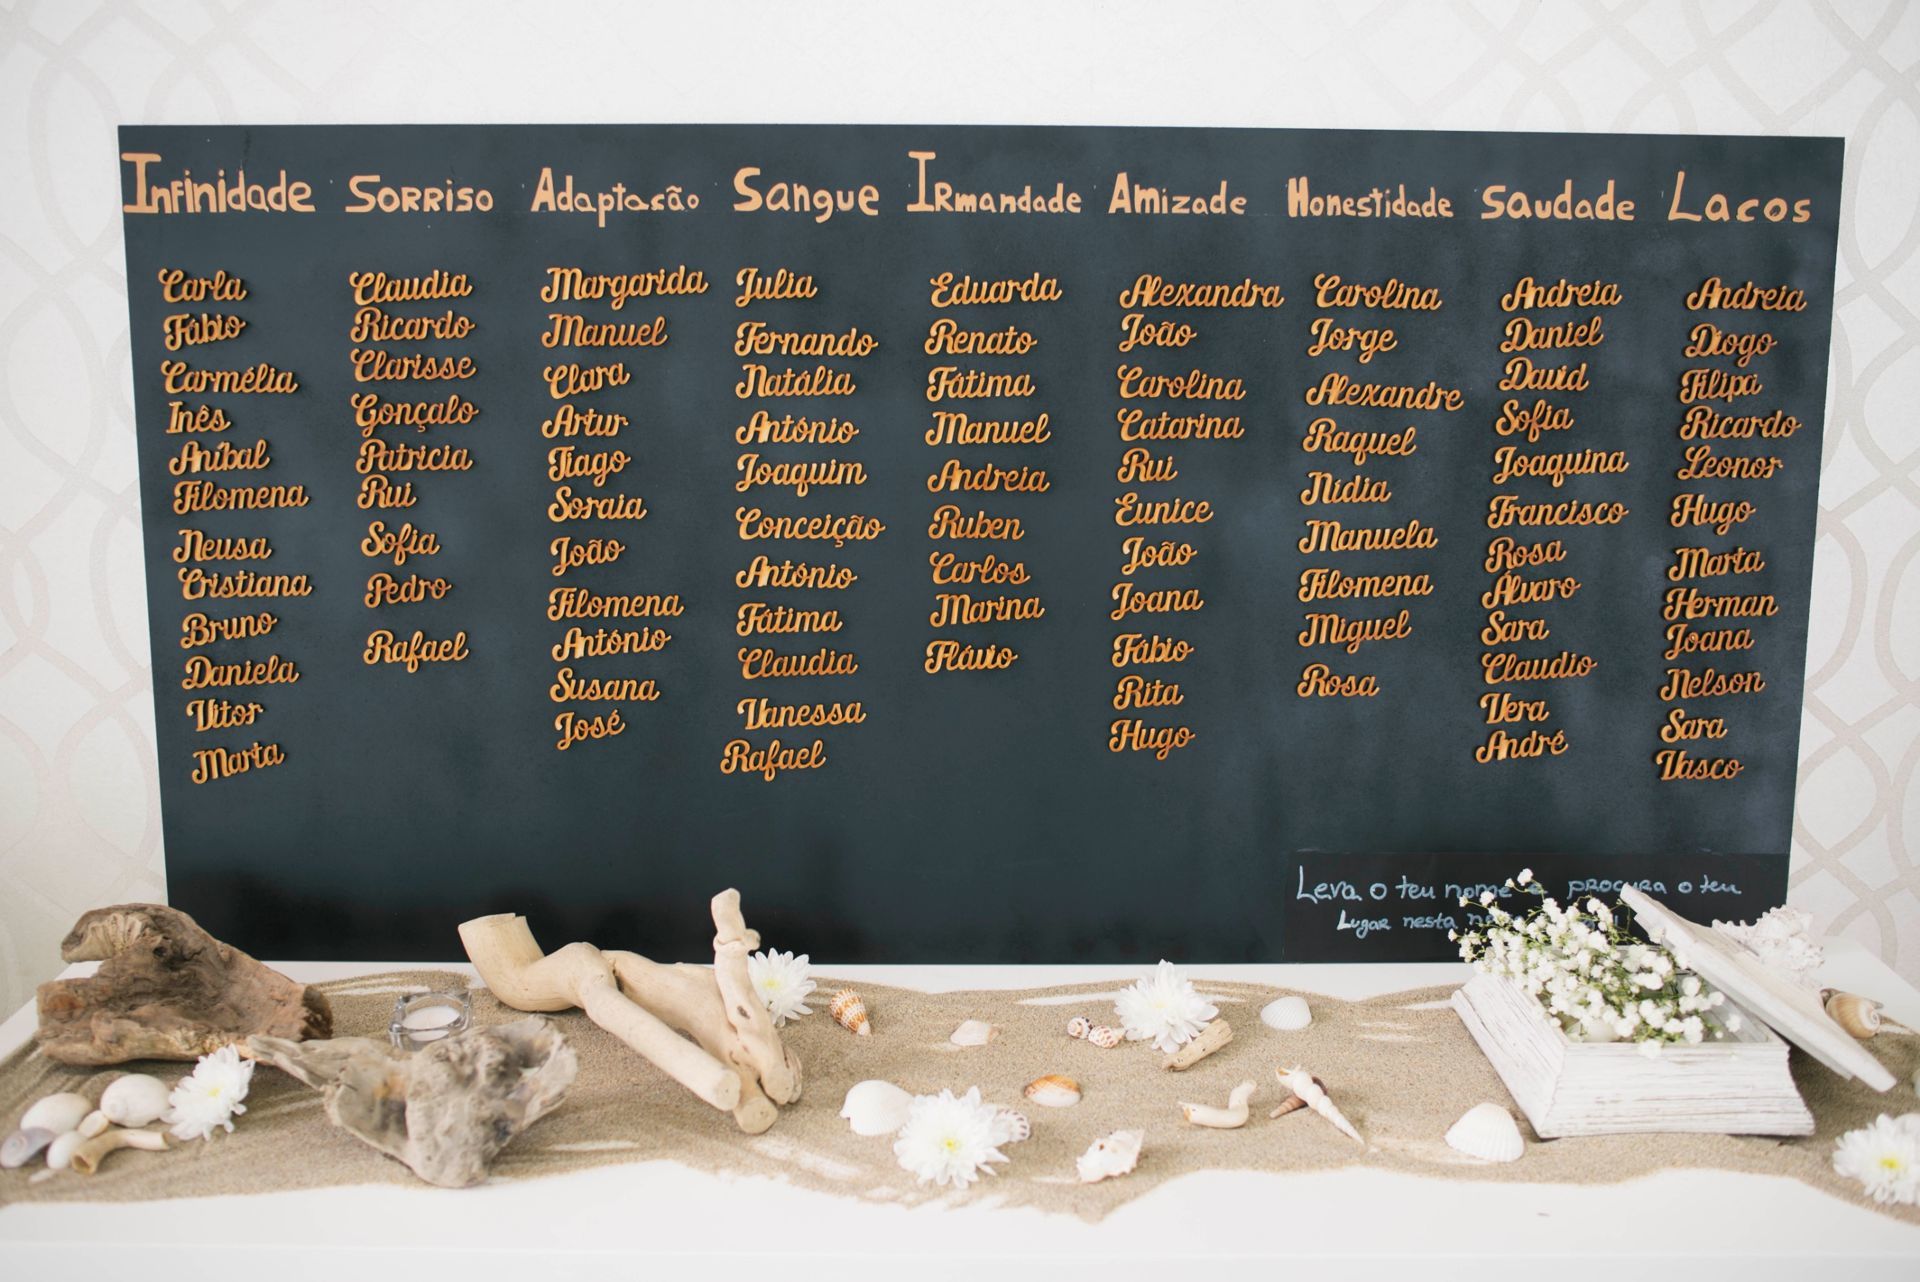 Infinidade
Carla
Fábio
Carmélia
Inês
Aníbal
Filomena
Neusa
Cristiana
Bruno
Daniela
Vitor
Marta
Sorriso
Claudia
Ricardo
Clarisse
Gonçalo
Patricia
Rui
Sofia
Pedro
Rafael
Adaptação
Margarida
Manuel
Clara
Artur
Tiago
Soraia
João
Filomena
António
Susana
José
Sangue
Julia
Fernando
Natália
António
Joaquim
Conceição
António
Fátima
Claudia
Vanessa
Rafael
Irmandade
Eduarda
Renato
Fátima
Manuel
Andreia
Ruben
Carlos
Marina
Flávio
Amizade
Alexandra
João
Carolina
Catarina
Rui
Eunice
João
Joana
Fábio
Rita
Hugo
Honestidade
Carolina
Jorge
Alexandre
Raquel
Nídia
Manuela
Filomena
Miguel
Rosa
Saudade
Andreia
Daniel
David
Sofia
Joaquina
Francisco
Rosa
Álvaro
Sara
Claudio
Vera
André
Lacos
Andreia
Diogo
Filipa
Ricardo
Leonor
Hugo
Marta
Herman
Joana
Nelson
Sara
Vasco
Leva o teu nome e procura o teu
Lugar nesta